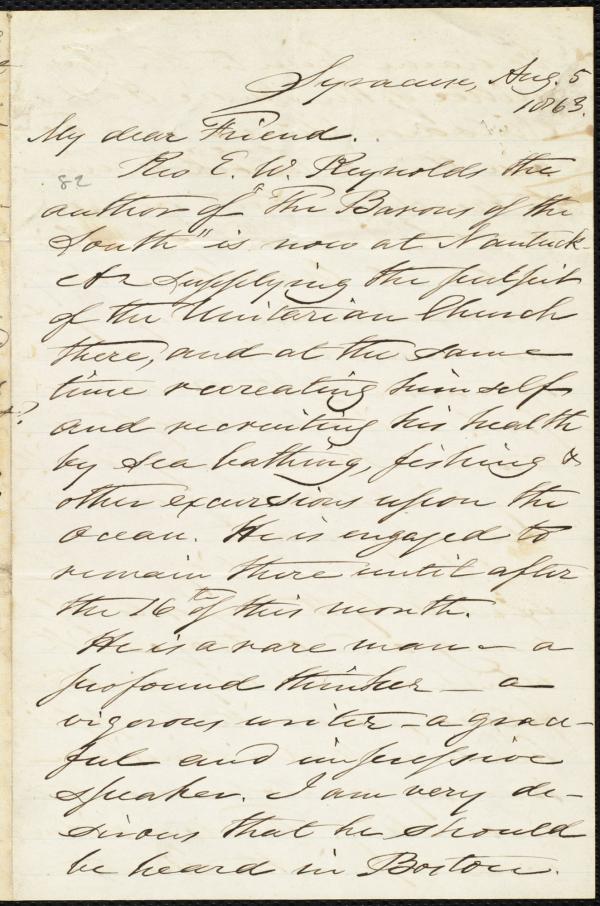 Syracuse, Aug. 5
1863.
My dear Friend.
82
Rev E. W. Reynolds the
author of "The Barons of the
South" is now at Nantuck-
et supplying the pulpit
of the Unitarian Church
there, and at the same
time recreating himself
and recruiting his health
by sea bathing, fishing &
other excursions upon the
ocean. He is engaged to
remain there until after
the 16th of this month.
He is a rare man – a
profound thinker – a
vigorous writer – a grace-
ful and impressive
speaker. I am very de-
sirous that he should
be heard in Boston.